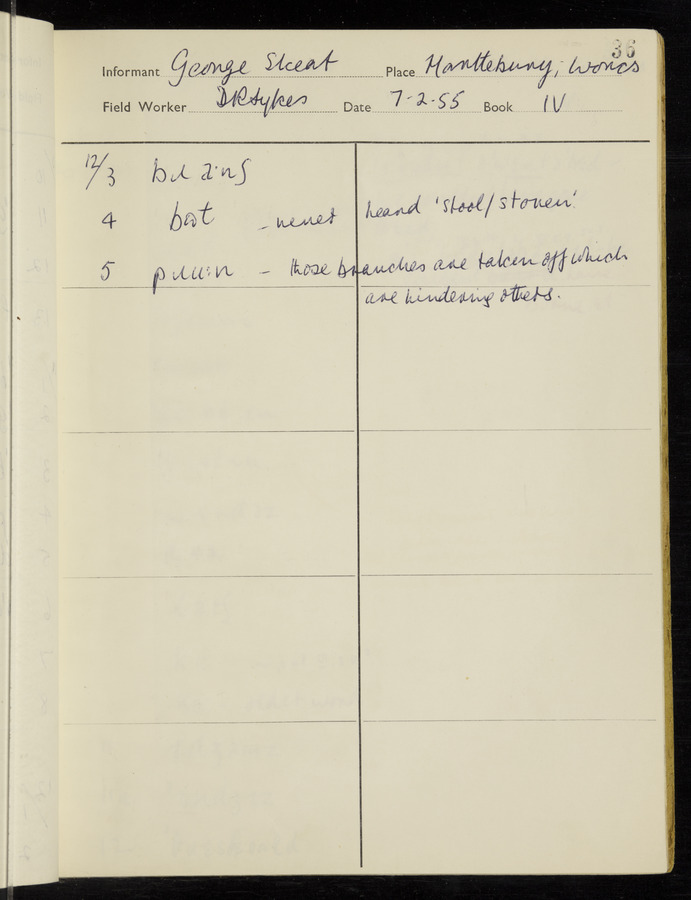 36
Informant George Skeat Place Hartlebury, Worcs
Field Worker D R Sykes Date 7-2-55 Book IV
12/3
4 – never heard 'stool/stoven'.
5 – those branches are taken off which
are hindering others.